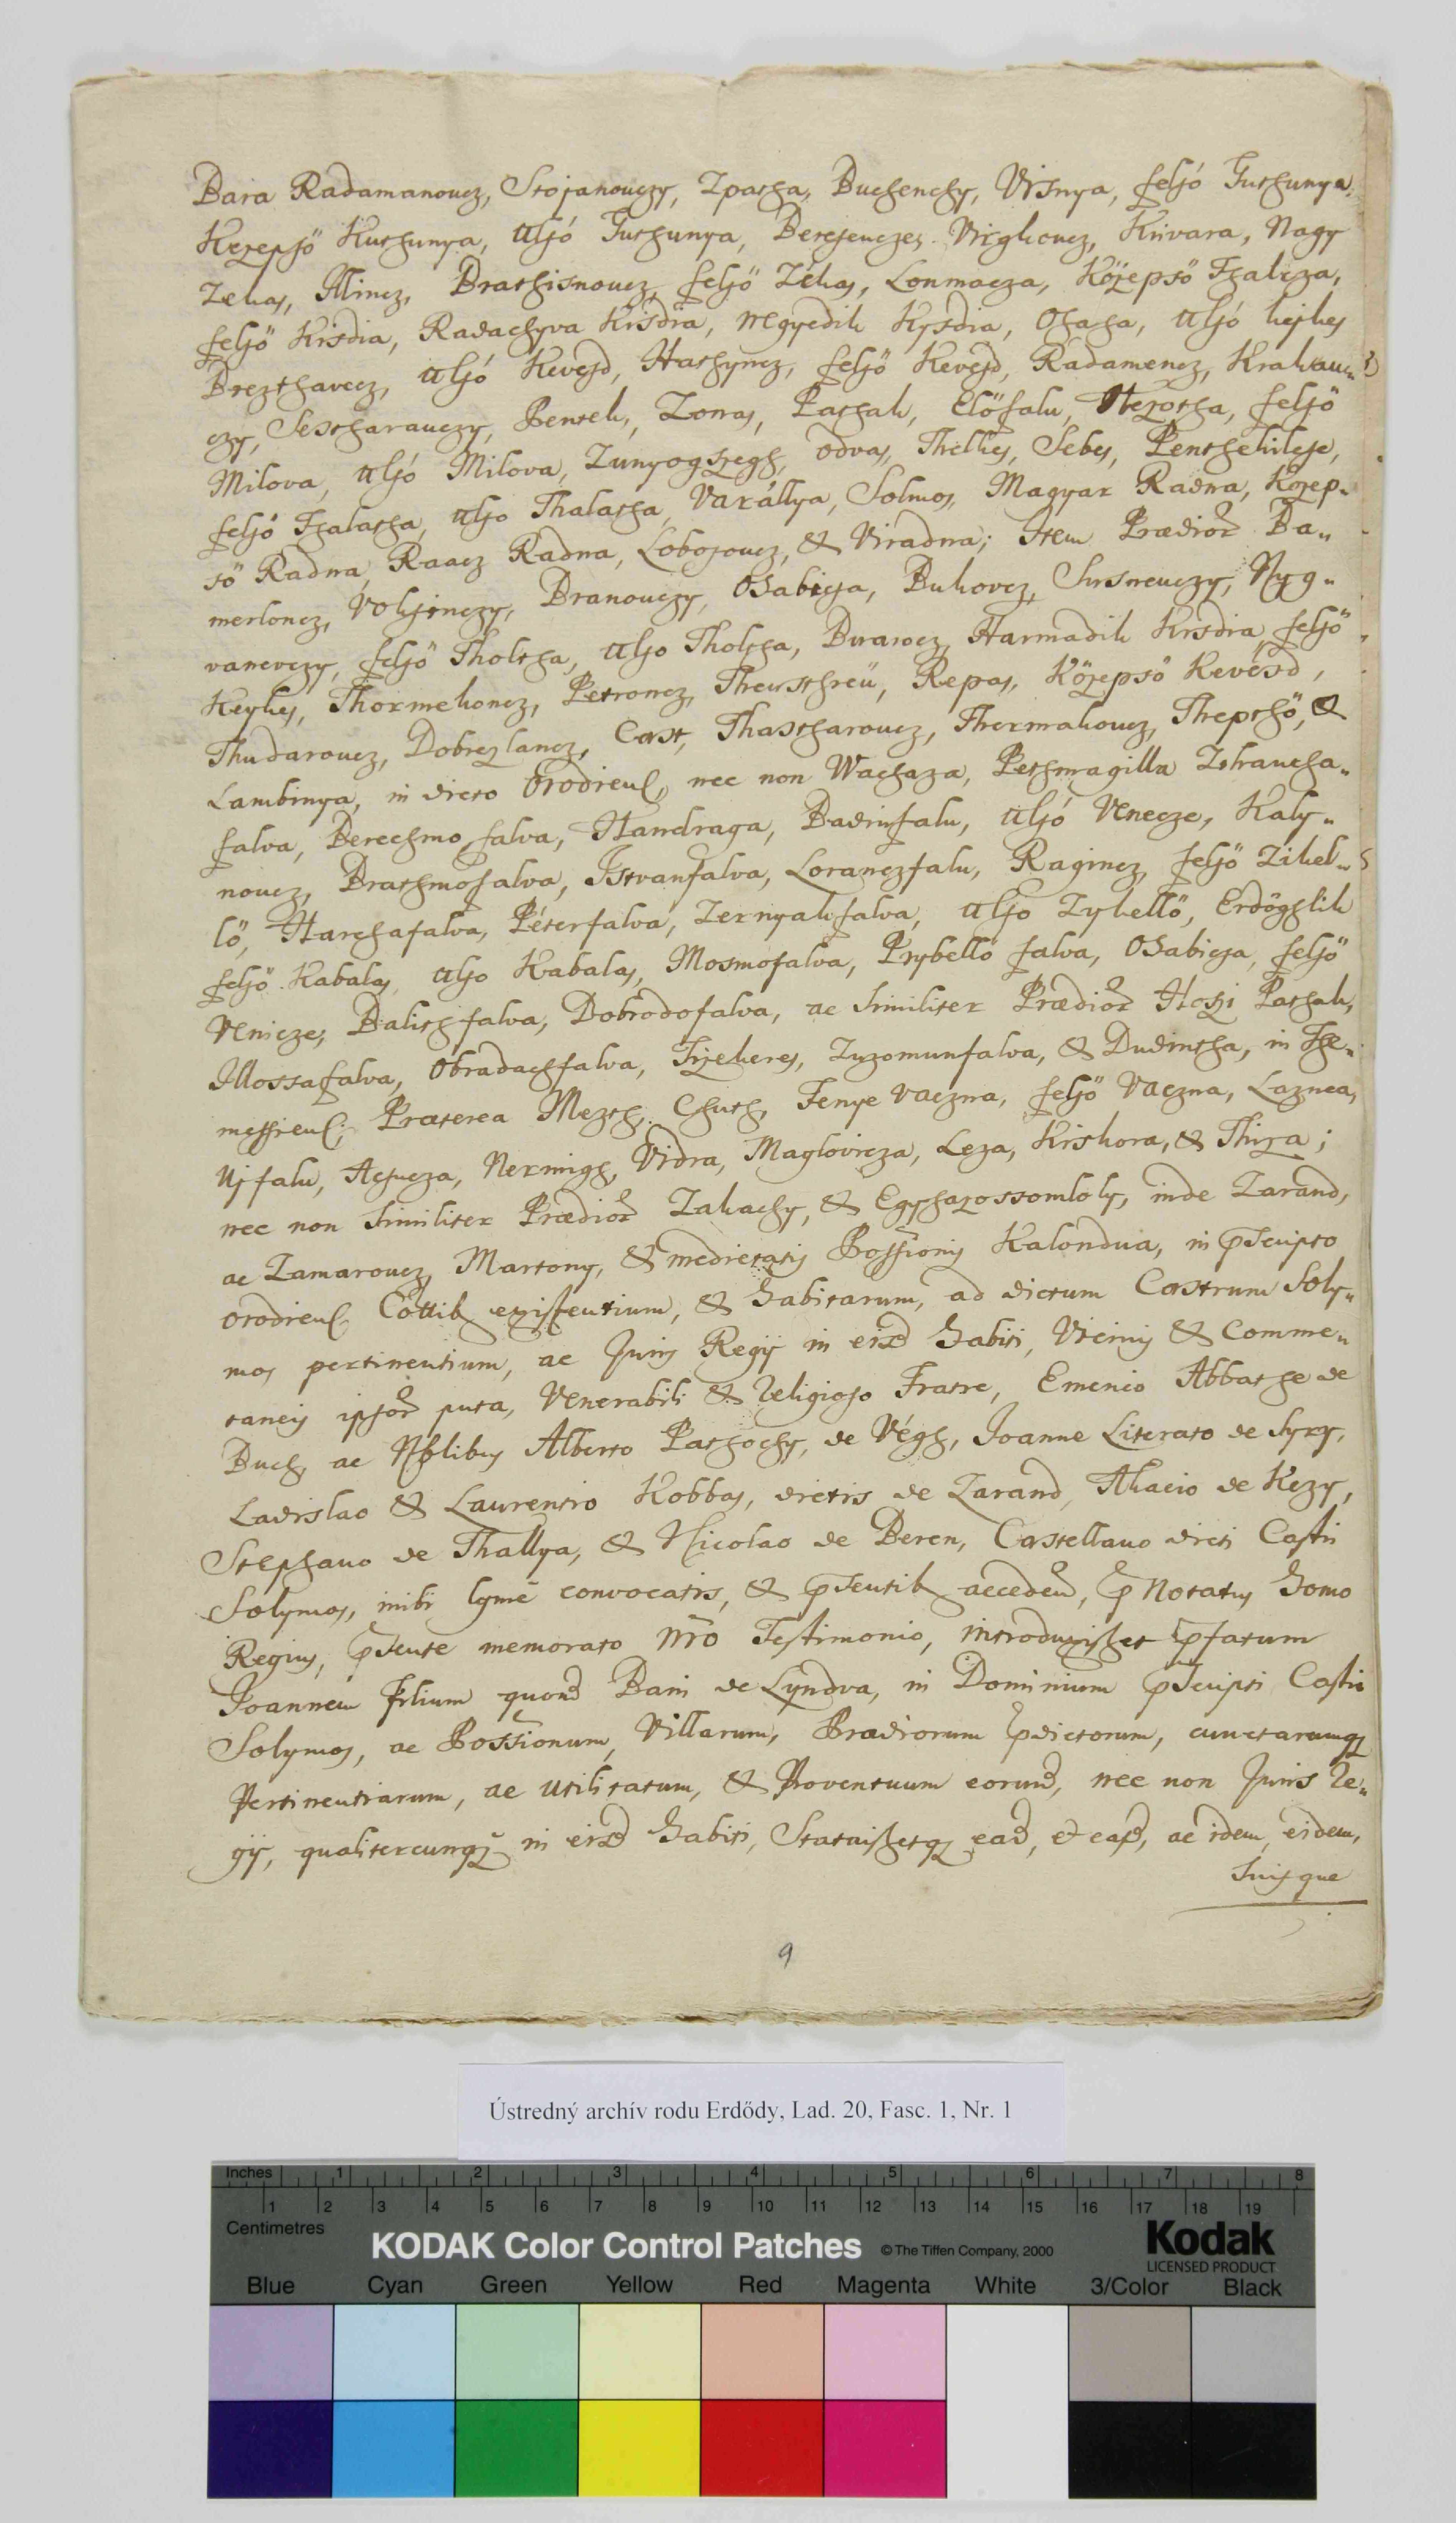 Bara Radamanoucz, Stojanouczy, Zpatha, Buchenchy, Visnya, felsö Tuthunya,
Kezepsö Kuthunya, Alsó Tuthunya, Berezenczes Virghoncz, Kiivara, Nagy
Zekas, Illincz, Brathisnoucz, felsö Zékas, Lonmacza, Közepsö Tzalicza,
felsö Kisdia, Radachyva Kisdia, negyedik Kysdia, Ohaha, Alsó kejkes
Brezthavecz, Alsó Kevesd, Hathyncz, felsö Kevesd, Radamencz, Krakau
czy, Sestharauczy, Bentek, Zonas, Pathak, Elöfalu, felsö
Milova, Alsó Milova, Zunyogszegh, Odvas, Thelkes, Sebes,
felsö Thalatha, Also Thalatha, Varállya, Solmos, Magyar Radna, Közep„
sö Radna, Raacz Radna, Lobozoucz, & Viradna; Item Prædior Ba„
merloncz, Branouczy, Osabicza, Bukovcz, Nyg„
vanevczy, felsö Tholtha, Also Tholtha, Harmadik Krisdia felsö
Keykes, Thormekoncz, Petroncz, Repas, Közepsö Kevésd,
Thudaroucz, Dobrezlancz, Cast, Thastharoucz, Thermakoucz, Thepthö, &
Lambinya, in dicto Orodiens, nec non Wachaza, Pethmagilla Zthaucha„
falva, Berechmo falva, Handraga, Badinfalu, Alsó Venecze, Kaly„
noucz, Brathmofalva, Istvanfalva, Loranczfalu, Ragincz, felsö Zikel„
lö, Harchafalva, Péterfalva, Zernyakfalva, Also Zykellö, Erdöghlik
felsö Kabalas, Also Kabalas, Mosmofalva, Prybellö falva, Osabicza, felsö
Venicze, Balithfalva, Dobrodofalva, ac similiter Prædior Hozi Pathak,
Illossafalva, Obradachfalva, Zuzomunfalva, & Dudintha, in The„
messiens; Præterea Mezth, Chuth, Fenye Vaczna, felsö Vaczna, Laznea,
Ujfalu, Achucza, Nermigh, Vidra, Maglovicza, Leza, Krishora, & Thirza;
nec non similiter Prædior Zakachy, & Egyhazossomloly, inde Zarand,
ac Zamaroucz, Martony, & medietatis Possionis Kalondua, in pscripto
Orodiens Cottib existentium, & habitarum, ad dictum Castrum Soly„
mos pertinentium, ac Juris Regij in eisd habiti, Vicinis & Comme„
taneis ipsor puta, Venerabili & Religioso Fratre, Emerico Abbathe de
Buch, ac Nobilibus Alberto Pathochy, de Végh, Joanne Literato de Syry,
Ladislao & Laurentio Kobbas, dictis de Zarand, Akacio de Kezy,
Stephano de Thallya, & Nicolao de Beren, Castellano dicti Castri
Solymos, inibi lgme convocatis, & psentib acceden, p Notatus homo
Regius, psente memorato nro Testimonio, introduxisset pfatum
Joannem filium quond Bani de Lyndva, in Dominium pscripti Castri
Solymos, ac Possionum, Villarum, Prædiorum pdictorum, cunctarumq
Pertinentiarum, ac Utilitatum, & Proventuum eorund, nec non Juris Re„
gij, qualitercunq in eisd habiti, Statuissetq ead, et easd, ac idem, eidem,
Suisque
9
Ústredný archív rodu Erdődy, Lad. 20, Fasc. 1, Nr. 1
Inches 1 2 3 4 5 6 7 8
1 2 3 4 5 6 7 8 9 10 11 12 13 14 15 16 17 18 19
Centimetres
KODAK Color Control Patches © The Tiffen Company, 2000 Kodak
LICENSED PRODUCT
Blue Cyan Green Yellow Red Magenta White 3/Color Black